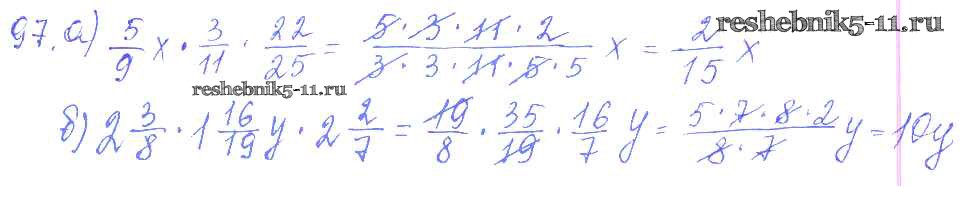 97. а) 5/9 x · 3/11 · 22/25 = 5·3·11·2/3·3·11·5·5 x = 2/15 x
reshebnik5-11.ru
reshebnik5-11.ru
б) 2 3/8 · 1 16/19 y · 2 2/7 = 19/8 · 35/19 · 16/7 y = 5·7·8·2/8·7 y = 10y